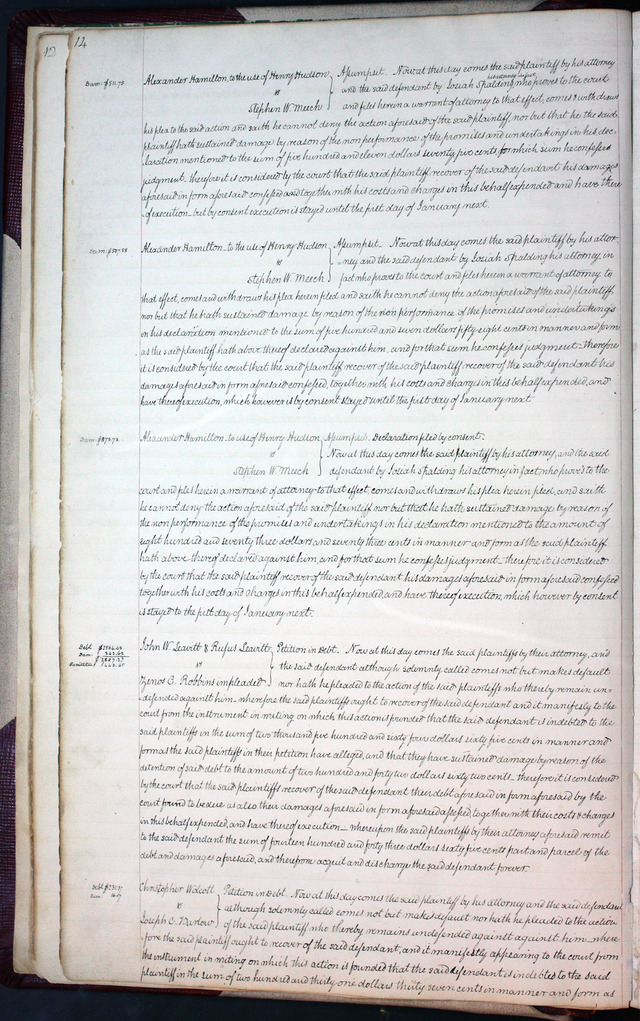 12
12
Dam: $511.75
Alexander Hamilton, to the use of Henry Hudson } Assumpsit. Now at this day comes the said plaintiff by his attorney
vs and the said defendant by Josiah Spalding his attorney in fact, who proves to the court
Stephen W. Meech and files herein a warrant of attorney to that effect, comes & withdraws
his plea to the said action and saith he cannot deny the action aforesaid of the said plaintiff, nor but that he the said
plaintiff hath sustained damage by reason of the non performance of the promises and undertakings in his dec-
laration mentioned to the sum of five hundred and eleven dollars seventy five cents for which sum he confesses
judgment. Therefore it is considered by the court that the said plaintiff recover of the said defendant his damages
aforesaid in form aforesaid confessed and together with his costs and charges in this behalf expended and have there
of execution but by consent execution is stayed until the first day of January next.
Dam: $507.58
Alexander Hamilton to the use of Henry Hudson } Assumpsit. Now at this day comes the said plaintiff by his attor-
vs ney and the said defendant by Josiah Spalding his attorney in
Stephen W. Meech fact who proves to the court and files herein a warrant of attorney to
that effect, comes and withdraws his plea herein pled and saith he cannot deny the action aforesaid of the said plaintiff,
nor but that he hath sustained damage by reason of the non performance of the promises and undertakings
in his declaration mentioned to the sum of five hundred and seven dollars fifty eight cents in manner and form
as the said plaintiff hath above thereof declared against him, and for that sum he confesses judgment. Therefore
it is considered by the court that the said plaintiff recover of the said plaintiff recover of the said defendant his
damages aforesaid in form aforesaid confessed, together with his costs and charges in this behalf expended, and
have thereof execution, which however is by consent stayed until the first day of January next.
Dam: $873.73
Alexander Hamilton to use of Henry Hudson } Assumpsit. Declaration filed by consent.
vs Now at this day comes the said plaintiff by his attorney, and the said
Stephen W. Meech defendant by Josiah Spalding his attorney in fact, who proves to the
court and files herein a warrant of attorney to that effect, comes and withdraws his plea herein pled, and saith
he cannot deny the action aforesaid of the said plaintiff nor but that he hath sustained damage by reason of
the non performance of the promises and undertakings in his declaration mentioned to the amount of
eight hundred and seventy three dollars and seventy three cents in manner and form as the said plaintiff
hath above thereof declared against him, and for that sum he confesses judgment therefore it is considered
by the court that the said plaintiff recover of the said defendant his damages aforesaid in form aforesaid confessed
together with his costs and charges in this behalf expended, and have thereof execution, which however by consent
is stayed to the first day of January next.
Debt $2564.65
Dam: 242.62
John W. Leavitt & Rufus Leavitt } Petition in Debt. Now at this day comes the said plaintiffs by their attorney, and
vs the said defendant although solemnly called comes not but makes default
Zenos C. Robbins impleaded nor hath he pleaded to the action of the said plaintiffs who thereby remain un-
defended against him wherefore the said plaintiffs ought to recover of the said defendant and it manifestly to the
court from the instrument in writing on which this action is founded that the said defendant is indebted to the
said plaintiffs in the sum of two thousand five hundred and sixty four dollars sixty five cents in manner and
form as the said plaintiffs in their petition have alleged, and that they have sustained damage by reason of the
detention of said debt to the amount of two hundred and forty two dollars sixty two cents. therefore it is considered
by the court that the said plaintiffs recover of the said defendant their debt aforesaid in form aforesaid by the
court found to be due as also their damages aforesaid in form aforesaid assessed, together with their costs & charges
in this behalf expended, and have thereof execution whereupon the said plaintiff by their attorney aforesaid remit
to the said defendant the sum of fourteen hundred and forty three dollars sixty five cents part and parcel of the
debt and damages aforesaid, and therefrom acquit and discharge the said defendant forever.
Debt $231.37
Christopher Wolcott } Petition in Debt. Now at this day comes the said plaintiff by his attorney and the said defendant
vs although solemnly called comes not but makes default nor hath he pleaded to the action
Joseph C. Barlow of the said plaintiff who thereby remains undefended against against him where-
fore the said plaintiff ought to recover of the said defendant, and it manifestly appearing to the court from
the instrument in writing on which this action is founded that the said defendant is indebted to the said
plaintiff in the sum of two hundred and thirty one dollars thirty seven cents in manner and form as